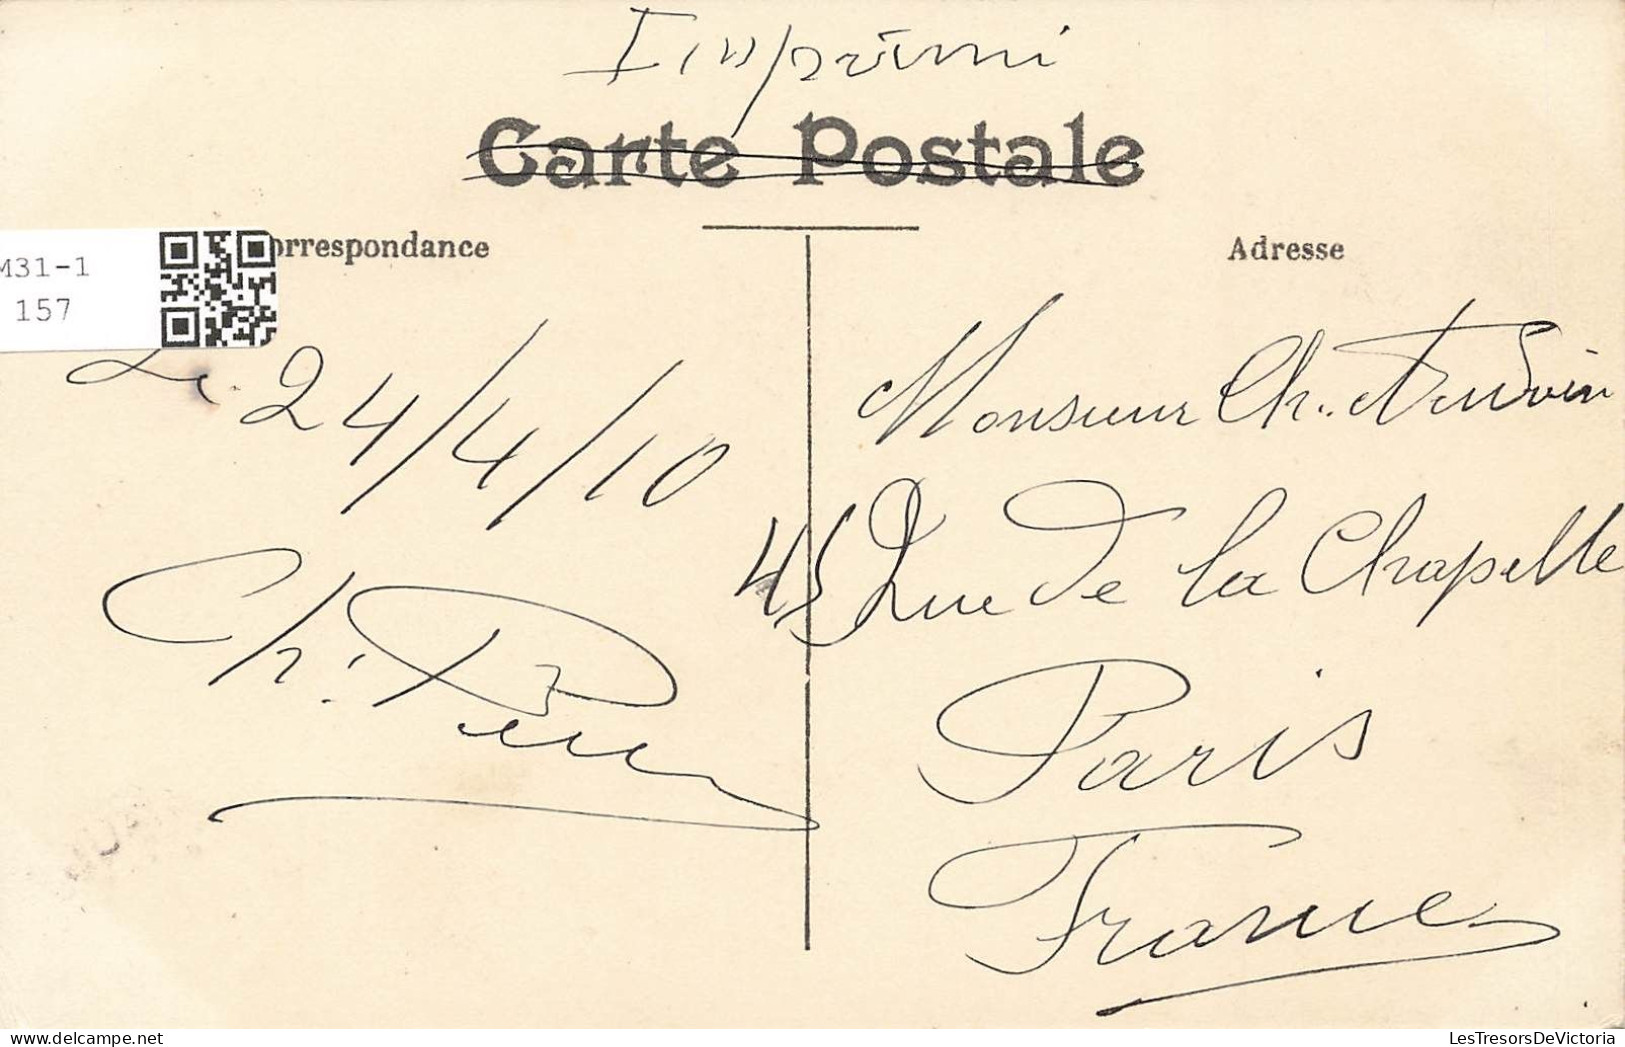 Imprimé
Carte Postale
orrespondance
Adresse
M31-1
157
Le 24/4/10
Monsieur Ch.
45 Rue de la Chapelle
Ch.
Paris
France
LesTresorsDeVictoria